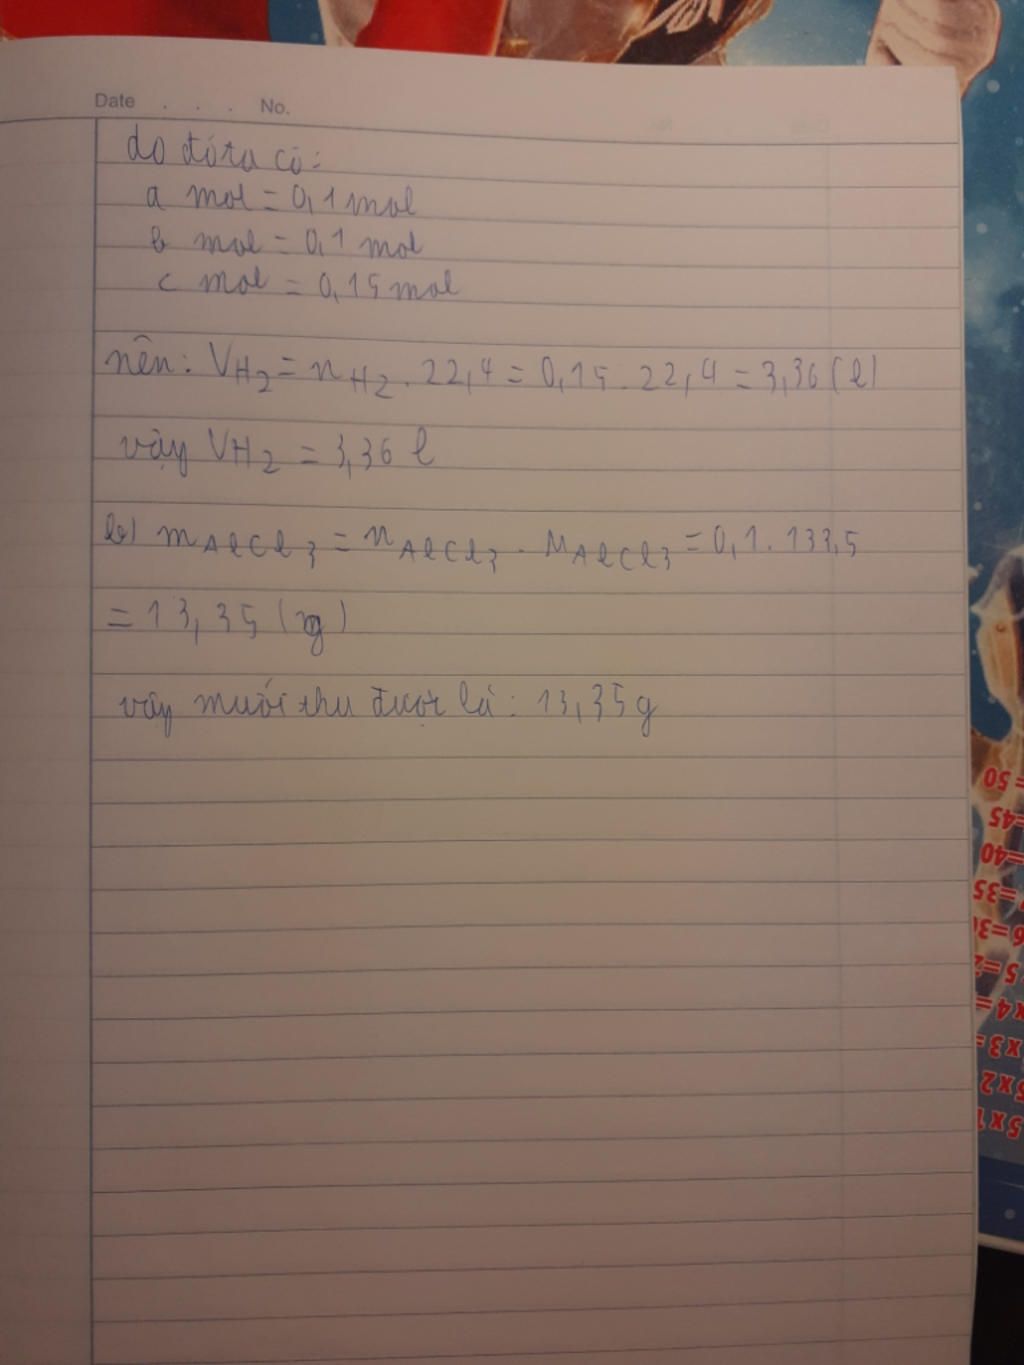 Date . . . No.
do đó ta có:
a mol = 0,1 mol
b mol = 0,1 mol
c mol = 0,15 mol
nên: VH2 = nH2 . 22,4 = 0,15 . 22,4 = 3,36 (l)
vậy VH2 = 3,36 l
b) mAlCl3 = nAlCl3 . MAlCl3 = 0,1 . 133,5
= 13,35 (g)
vậy muối thu được là: 13,35g
=50
=45
=40
=35
6=30
5=2
x4=
x3=
5x2
5x1